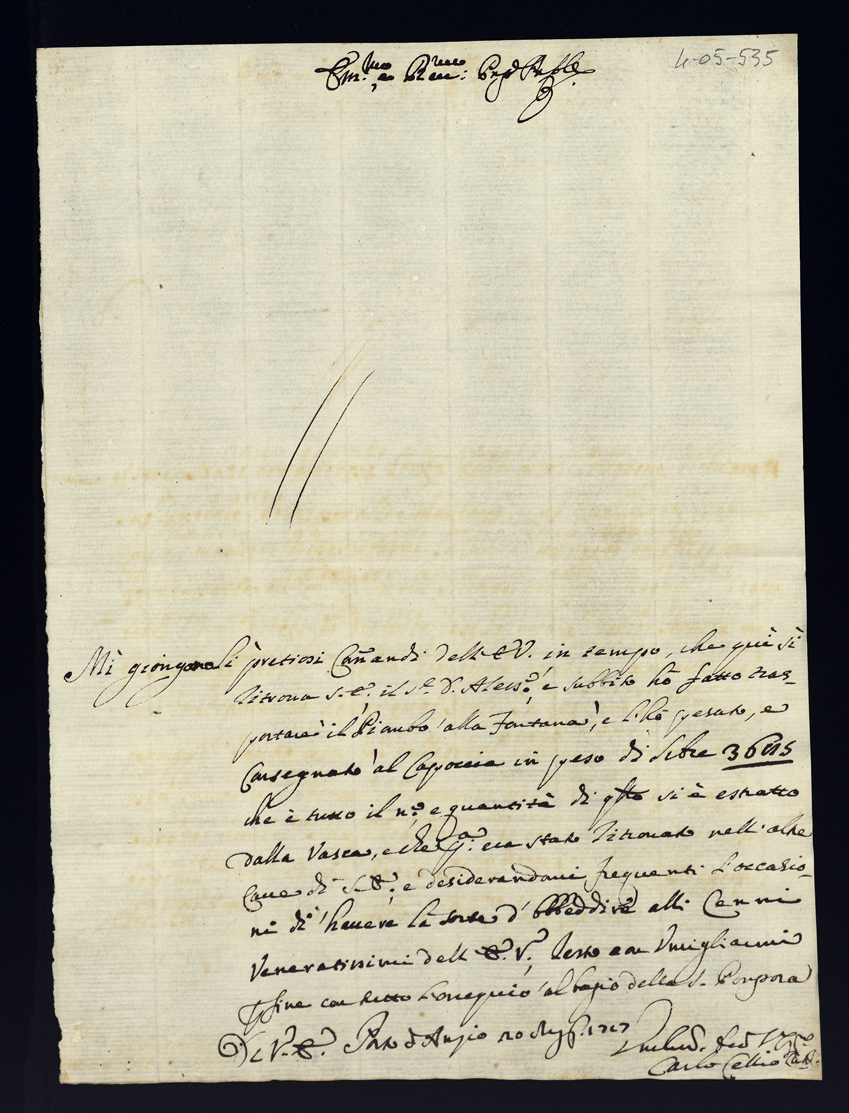 4-05-535
Em.mo e Rev.mo
Mi giongono li pretiosi Comandi dell'E.V. in tempo, che quì si
ritrova S.E. il Sr. D. Aless.o, e subbito hò fatto tras-
portare il Piombo alla Fontana, e l'hò pesato, e
Consegnato al Capoccia in peso di libre 36
che è tutto il n.o e quantità di qsto si è estratto
dalla Vasca, e che era stato ritrovato nell'altre
Cave di S.E. e desiderandomi frequenti l'occasio-
ni di havere la sorte d'obbeddire alli Cenni
Veneratissimi dell'E.V. resto con Umigliarmi
fine con tutto l'ossequio al bagio della S. Porpora
Di V.E. Porto d'Anzio 20 1717
Carlo Cellio